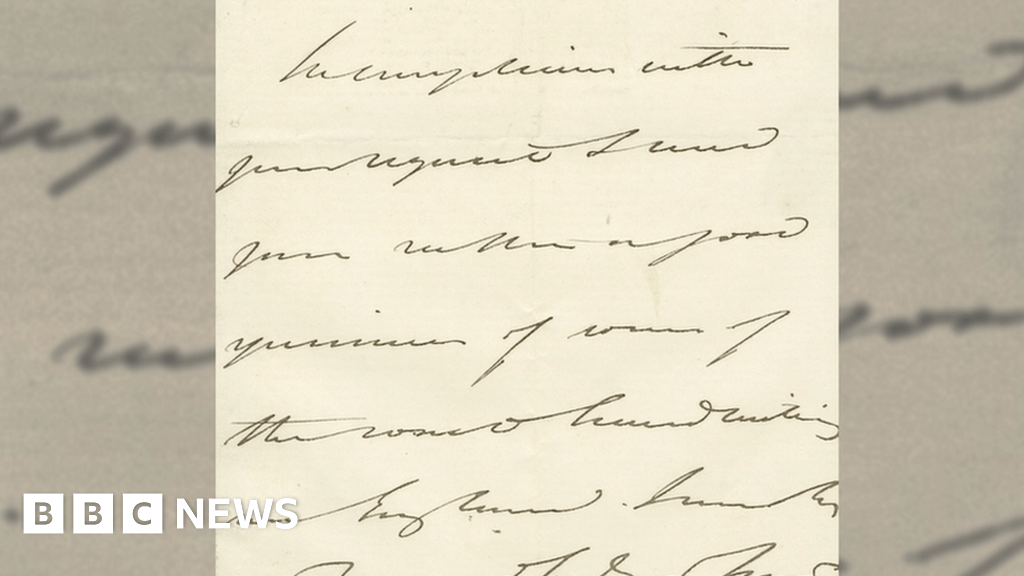 In compliance with
your request I send
you rather a good
specimen of some of
the worst handwriting
in England.
BBC NEWS